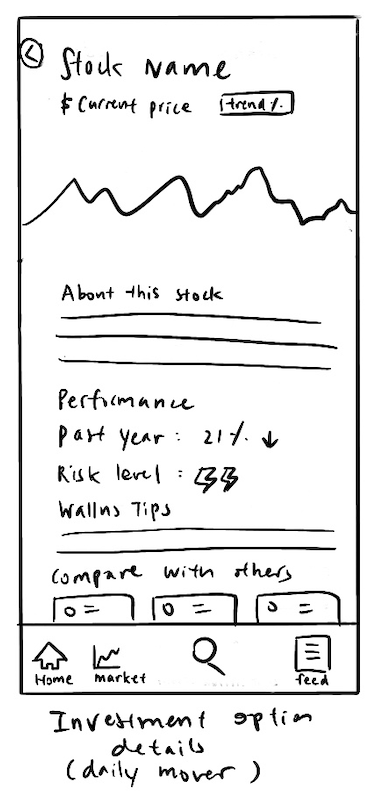 Stock Name
$ Current price trend %
About this stock
Performance
Past year : 21 % ↓
Risk level :
Wallns Tips
Compare with others
Home market feed
Investment option
details
(daily mover)